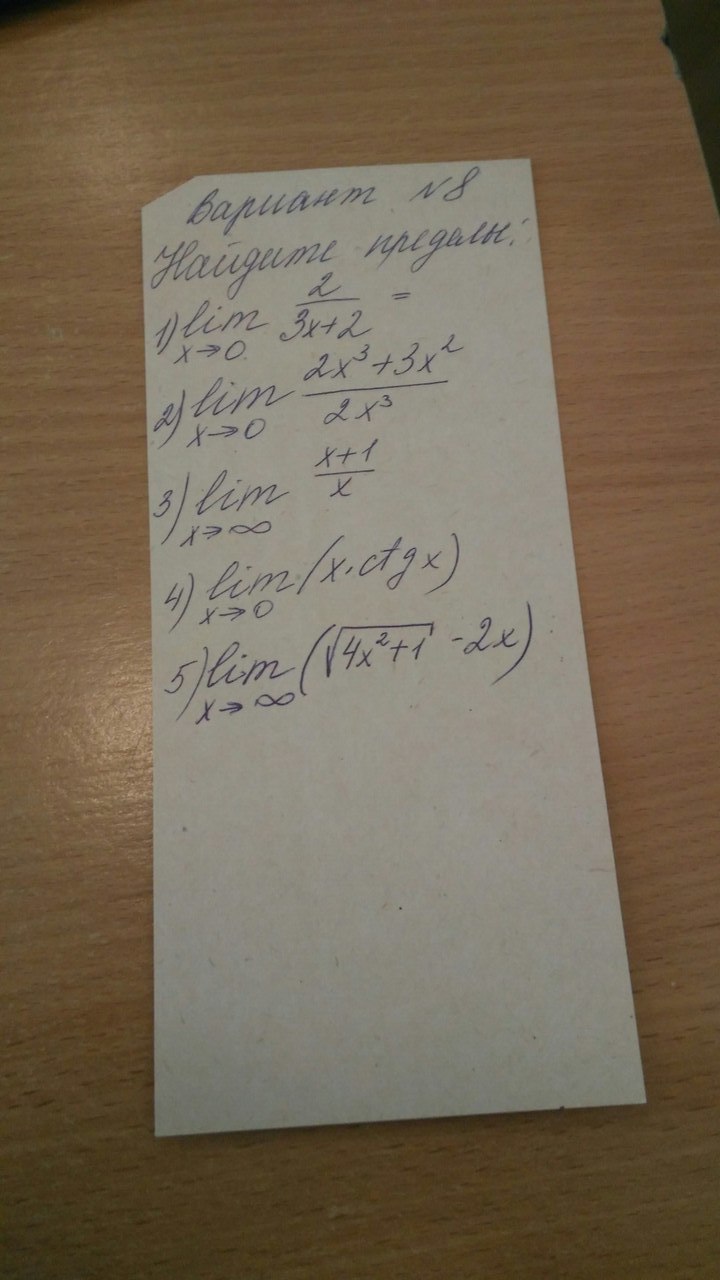 Вариант №8
Найдите пределы:
1) lim x→0 2/(3x+2) =
2) lim x→0 (2x³+3x²)/(2x³)
3) lim x→∞ (x+1)/x
4) lim x→0 (x·ctg x)
5) lim x→∞ (√(4x²+1) - 2x)